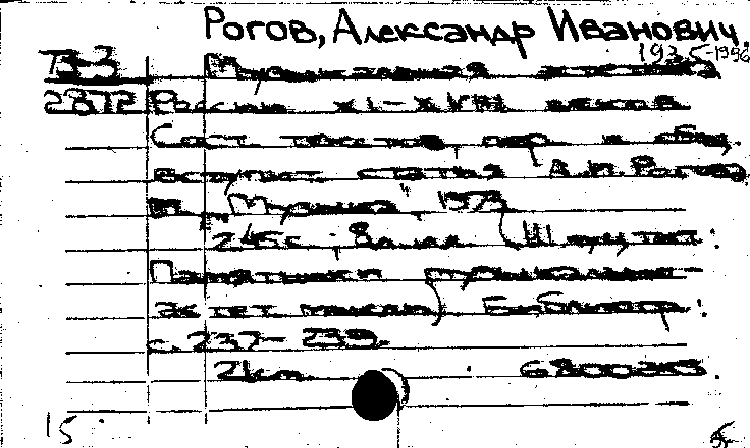 Рогов, Александр Иванович,
1935-1996
В-3 Музыкальная эстетика
2872 России XI-XVIII веков
Сост. текстов, пер. и общ.
вступит. статья А.И. Рогова
М., "Музыка", 1973
245 с.; 8 л. ил.
Памятники музыкально-
эстет. мысли) Библиогр.:
с. 237-239.
2 km. 68002к3.
15